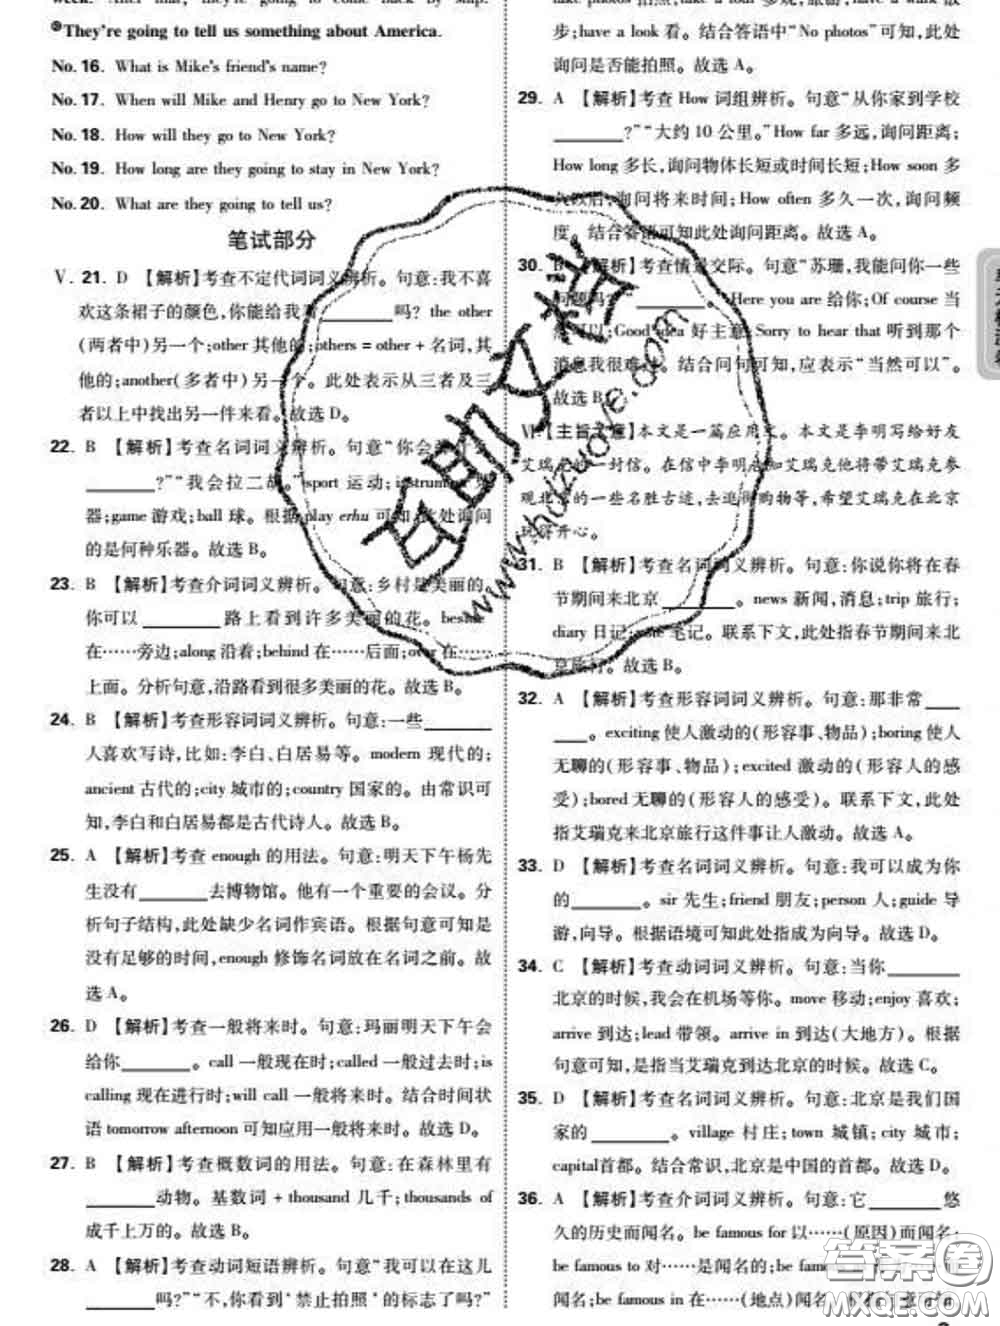 week. After that, they're going to come back by ship.
They're going to tell us something about America.
No. 16. What is Mike's friend's name?
No. 17. When will Mike and Henry go to New York?
No. 18. How will they go to New York?
No. 19. How long are they going to stay in New York?
No. 20. What are they going to tell us?
笔试部分
Ⅴ. 21. D 【解析】考查不定代词词义辨析。句意:我不喜
欢这条裙子的颜色,你能给我 吗? the other
(两者中)另一个;other 其他的;others = other + 名词,其
他的;another(多者中)另一个。此处表示从三者及三
者以上中找出另一件来看。故选 D。
22. B 【解析】考查名词词义辨析。句意“你会
?”“我会拉二胡。”sport 运动;instrument
器;game 游戏;ball 球。根据 play erhu 可知,此处询问
的是何种乐器。故选 B。
23. B 【解析】考查介词词义辨析。句意:乡村是美丽的。
你可以 路上看到许多美丽的花。beside
在……旁边;along 沿着;behind 在……后面;over 在……
上面。分析句意,沿路看到很多美丽的花。故选 B。
24. B 【解析】考查形容词词义辨析。句意:一些
人喜欢写诗,比如:李白、白居易等。modern 现代的;
ancient 古代的;city 城市的;country 国家的。由常识可
知,李白和白居易都是古代诗人。故选 B。
25. A 【解析】考查 enough 的用法。句意:明天下午杨先
生没有 去博物馆。他有一个重要的会议。分
析句子结构,此处缺少名词作宾语。根据句意可知是
没有足够的时间,enough 修饰名词放在名词之前。故
选 A。
26. D 【解析】考查一般将来时。句意:玛丽明天下午会
给你 。call 一般现在时;called 一般过去时;is
calling 现在进行时;will call 一般将来时。结合时间状
语 tomorrow afternoon 可知应用一般将来时。故选 D。
27. B 【解析】考查概数词的用法。句意:在森林里有
动物。基数词 + thousand 几千;thousands of
成千上万的。故选 B。
28. A 【解析】考查动词短语辨析。句意“我可以在这儿
?”“不,你看到‘禁止拍照’的标志了吗?”
take photos 拍照;have a walk 散
步;have a look 看。结合答语中“No photos”可知,此处
询问是否能拍照。故选 A。
29. A 【解析】考查 How 词组辨析。句意“从你家到学校
?”“大约 10 公里。”How far 多远,询问距离;
How long 多长,询问物体长短或时间长短;How soon 多
久以后,询问将来时间;How often 多久一次,询问频
度。结合答语可知此处询问距离。故选 A。
30. B 【解析】考查情景交际。句意“苏珊,我能问你一些
问题吗?”“ 。”Here you are 给你;Of course 当
然可以;Good idea 好主意;Sorry to hear that 听到那个
消息我很难过。结合问句可知,应表示“当然可以”。
故选 B。
Ⅵ.【主旨大意】本文是一篇应用文。本文是李明写给好友
艾瑞克的一封信。在信中李明 艾瑞克他将带艾瑞克参
观北京的一些名胜古迹,去 购物等,希望艾瑞克在北京
玩得开心。
31. B 【解析】考查名词词义辨析。句意:你说你将在春
节期间来北京 。news 新闻,消息;trip 旅行;
diary 日记;note 笔记。联系下文,此处指春节期间来北
京旅行。故选 B。
32. A 【解析】考查形容词词义辨析。句意:那非常
。exciting 使人激动的(形容事、物品);boring 使人
无聊的(形容事、物品);excited 激动的(形容人的感
受);bored 无聊的(形容人的感受)。联系下文,此处
指艾瑞克来北京旅行这件事让人激动。故选 A。
33. D 【解析】考查名词词义辨析。句意:我可以成为你
的 。sir 先生;friend 朋友;person 人;guide 导
游,向导。根据语境可知此处指成为向导。故选 D。
34. C 【解析】考查动词词义辨析。句意:当你
北京的时候,我会在机场等你。move 移动;enjoy 喜欢;
arrive 到达;lead 带领。arrive in 到达(大地方)。根据
句意可知,是指当艾瑞克到达北京的时候。故选 C。
35. D 【解析】考查名词词义辨析。句意:北京是我们国
家的 。village 村庄;town 城镇;city 城市;
capital首都。结合常识,北京是中国的首都。故选 D。
36. A 【解析】考查介词词义辨析。句意:它 悠
久的历史而闻名。be famous for 以……(原因)而闻名;
be famous to 对……是闻名的;be famous
闻名;be famous in 在……(地点)闻名。
百朗文档
www.hdzuoye.com
答案圈